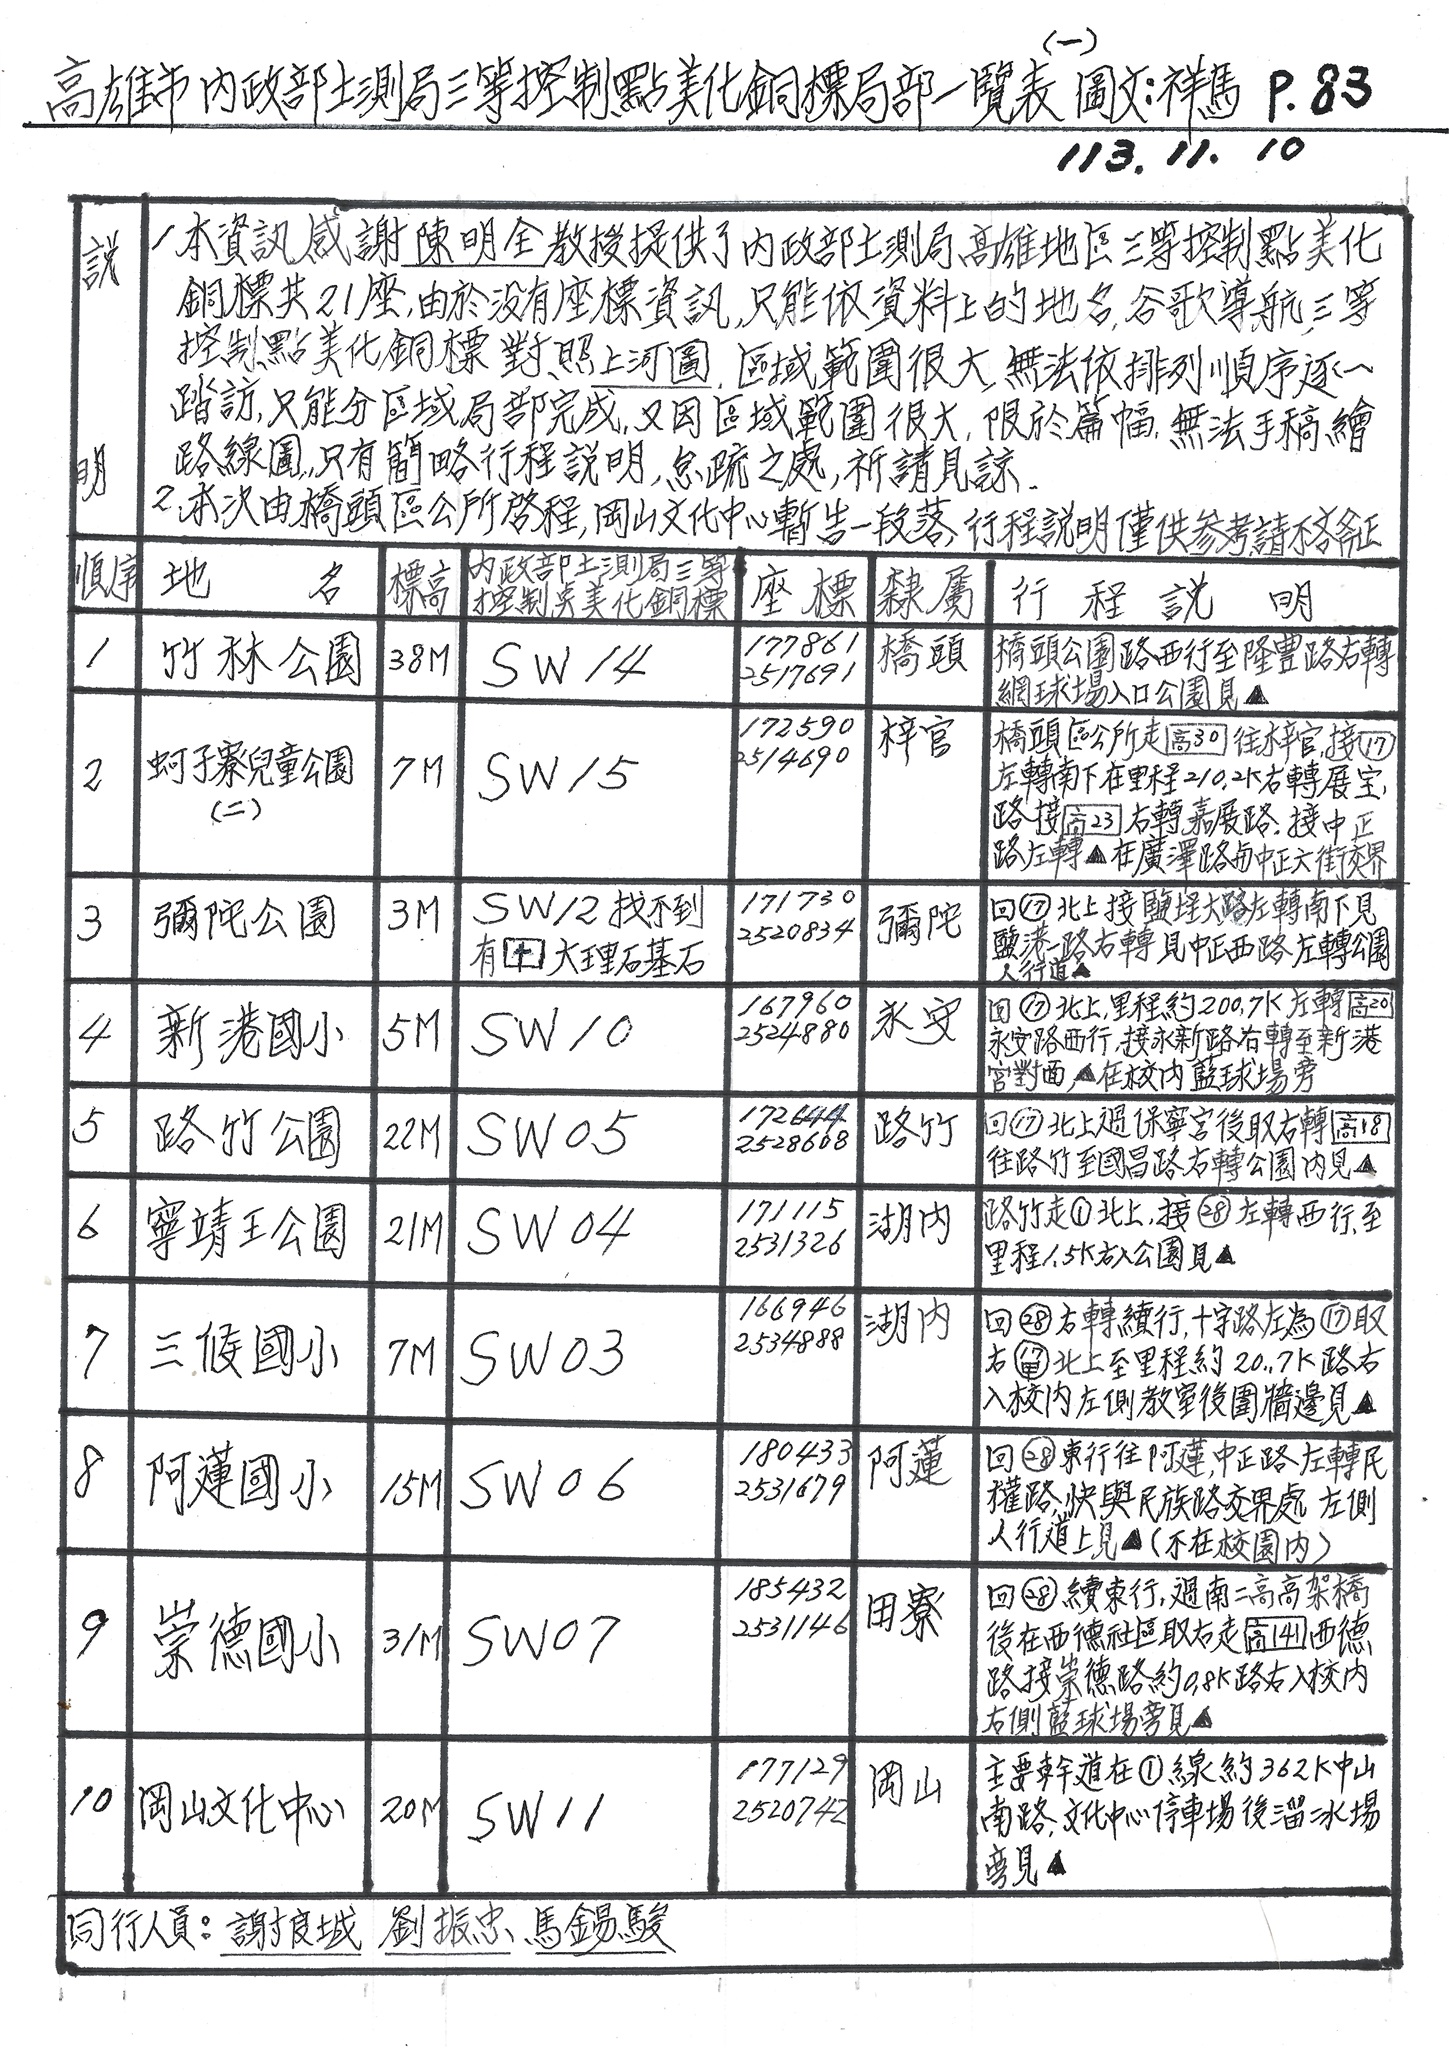 (一)
高雄市內政部土測局三等控制點美化銅標局部一覽表 圖文:祥馬 P.83
113.11.10
說明
1.本資訊感謝陳明全教授提供了內政部土測局高雄地區三等控制點美化
銅標共21座,由於沒有座標資訊,只能依資料上的地名,谷歌導航,三等
控制點美化銅標對照上河圖,區域範圍很大,無法依排列順序逐一
踏訪,只能分區域局部完成,又因區域範圍很大,限於篇幅,無法手稿繪
路線圖,只有簡略行程說明,怠疏之處,祈請見諒.
2.本次由橋頭區公所啓程,岡山文化中心暫告一段落,行程說明僅供參考請不吝斧正
順序 地名 標高 內政部土測局三等 座標 隸屬 行程說明
控制点美化銅標
1 竹林公園 38M SW14 177861 橋頭 橋頭公園路西行至隆豐路右轉
2517691 網球場入口公園見▲
2 蚵子寮兒童公園 7M SW15 172590 梓官 橋頭區公所走高30往梓官,接⑰
(二) 2514690 左轉南下在里程210.2K右轉展宝
路接高23右轉嘉展路.接中正
路左轉▲在廣澤路与中正六街交界
3 彌陀公園 3M SW12找不到 171730 彌陀 回⑰北上接鹽埕大路左轉南下見
有十大理石基石 2520834 鹽港一路右轉見中正西路左轉公園
人行道▲
4 新港國小 5M SW10 167960 永安 回⑰北上,里程約200.7K左轉高20
2524880 永安路西行,接永新路右轉至新港
宮對面,▲在校內籃球場旁
5 路竹公園 22M SW05 172644 路竹 回⑰北上過保寧宮後取右轉高18
2528608 往路竹至國昌路右轉公園內見▲
6 寧靖王公園 21M SW04 171115 湖內 路竹走①北上,接㉘左轉西行,至
2531326 里程1.5K右入公園見▲
7 三候國小 7M SW03 166946 湖內 回㉘右轉續行,十字路左為⑰取
2534888 右⑰甲北上至里程約20.7K路右
入校內左側教室後圍牆邊見▲
8 阿蓮國小 15M SW06 180433 阿蓮 回㉘東行往阿蓮,中正路左轉民
2531679 權路,快與民族路交界處左側
人行道上見▲(不在校園內)
9 崇德國小 31M SW07 185432 田寮 回㉘續東行,過南二高高架橋
2531146 後在西德社區取右走高141西德
路接崇德路約0.8K路右入校內
右側籃球場旁見▲
10 岡山文化中心 20M SW11 177129 岡山 主要幹道在①線約362K中山
2520742 南路,文化中心停車場後溜冰場
旁見▲
同行人員:謝良城 劉振忠 馬錫駿